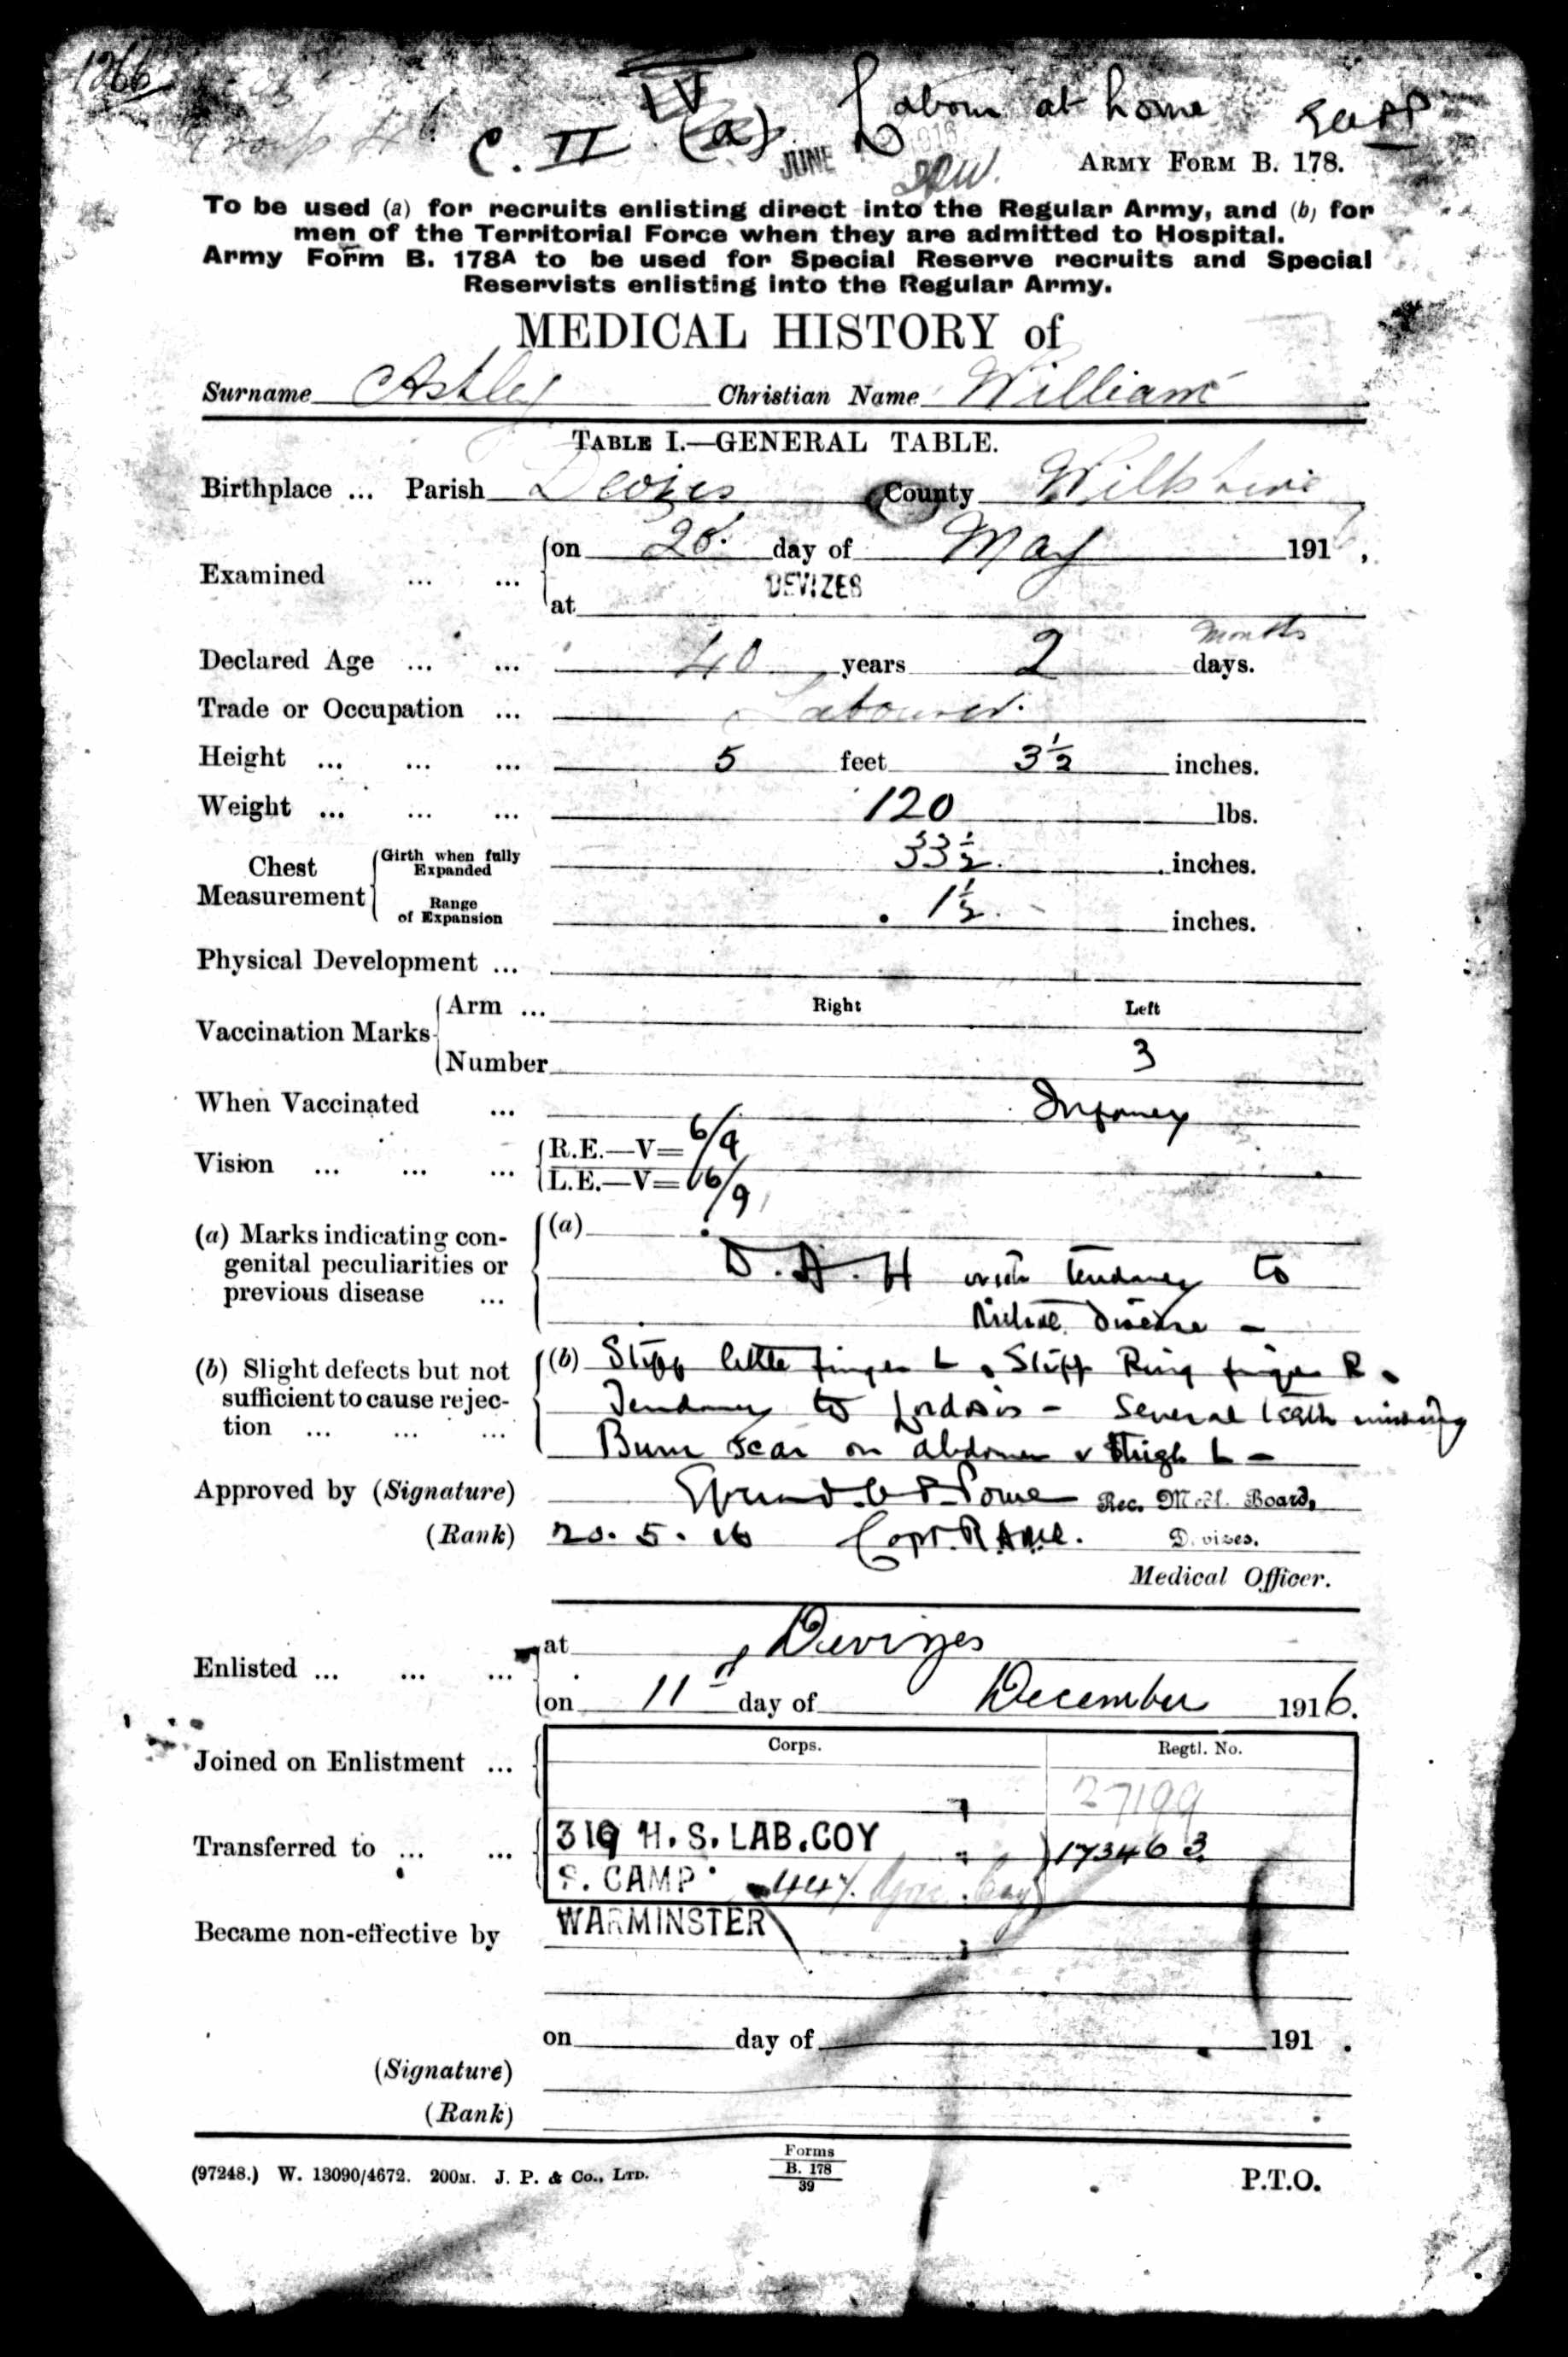 1266
C. II IV (a) Labour at home
JUNE 1916
ARMY FORM B. 178.
To be used (a) for recruits enlisting direct into the Regular Army, and (b) for
men of the Territorial Force when they are admitted to Hospital.
Army Form B. 178A to be used for Special Reserve recruits and Special
Reservists enlisting into the Regular Army.
MEDICAL HISTORY of
Surname Astley Christian Name William
TABLE I.—GENERAL TABLE.
Birthplace ... Parish Devizes County Wiltshire
Examined ... ... on 20. day of May 191 ,
at DEVIZES
months
Declared Age ... ... 40 years 2 days.
Trade or Occupation ... Labourer.
Height ... ... ... 5 feet 3½ inches.
Weight ... ... ... 120 lbs.
Chest Measurement Girth when fully Expanded 33½. inches.
Range of Expansion 1½. inches.
Physical Development ...
Vaccination Marks Arm ... Right Left
Number 3
When Vaccinated ... Infancy
Vision ... ... ... R.E.—V= 6/9
L.E.—V= 6/9
(a) Marks indicating con- (a)
genital peculiarities or D.A.H with tendency to
previous disease ... disease -
(b) Slight defects but not (b) Stiff little finger L. Stiff Ring finger R.
sufficient to cause rejec- Tendency to Lordosis - Several teeth missing
tion ... ... ... Burn scar on abdomen & thigh L -
Approved by (Signature) Rec. Medl. Board,
(Rank) 20. 5. 16 Capt. R.A.M.C. Devizes.
Medical Officer.
Enlisted ... ... ... at Devizes
on 11th day of December 1916.
Corps. Regtl. No.
Joined on Enlistment ... 27199
Transferred to ... ... 319 H.S. LAB. COY 173463
S. CAMP 447. Agric. Coy
Became non-effective by WARMINSTER
on day of 191 .
(Signature)
(Rank)
(97248.) W. 13090/4672. 200M. J. P. & Co., LTD. Forms
B. 178
39
P.T.O.